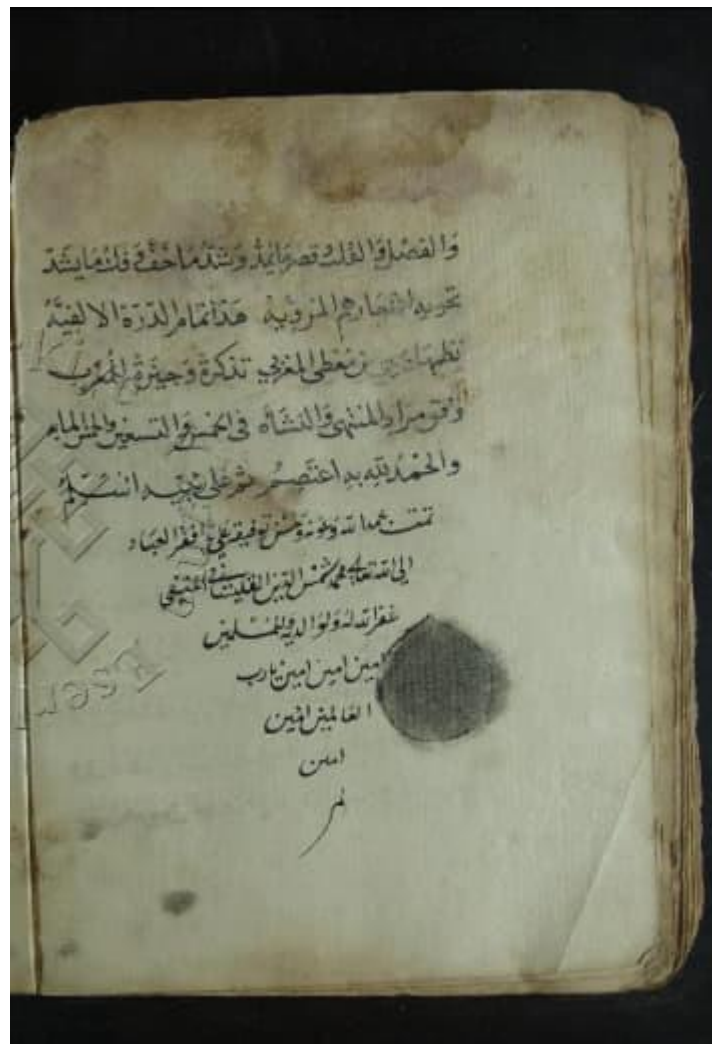 وَالفَصْل وَالفَكّ وقصر مَا يُمَدّ وَشَدّ مَا خَفّ وَفَكّ مَا يُشَدّ
تحويه اشعارهم المرويه هَذا تمام الدّرّة الالفيّهْ
نظمها يحيى بن معطى المغربي تذكرة وَجيزة للمُعرب
وَفق مراد المنتهى وَالنشأه في الخمس وَالتسعين والخمس المايه
والحمْدُ لله به اعْتَصِمُ ثم على نبيه اسَلّمُ
تمت بحمد الله وعونه وحسن توفيقه على افقر العباد
الى الله تعالى محمد شمس الدين
غفر الله له ولوالديه وللمسلمين
امين امين امين يارب
العالمين امين
امين
تم